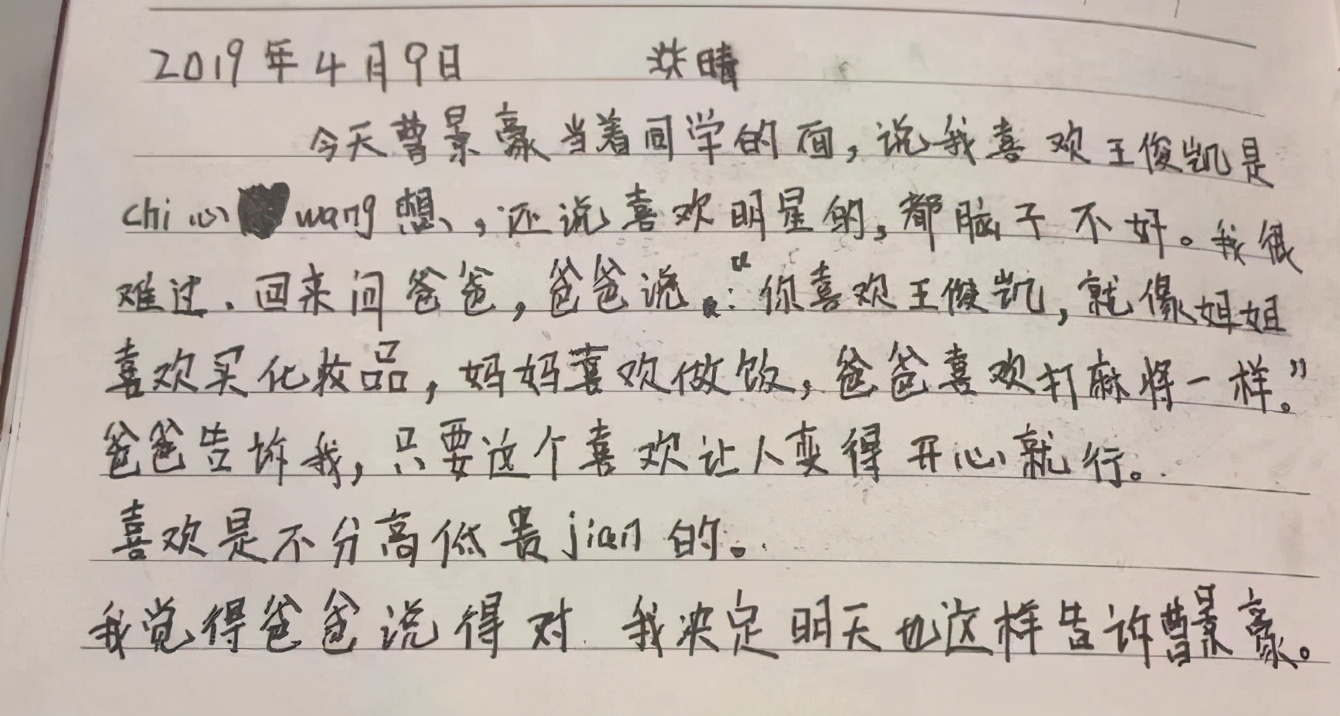 2019年4月9日 晴
今天曹景豪当着同学的面，说我喜欢王俊凯是
chi心wang想，还说喜欢明星的，都脑子不好。我很
难过．回来问爸爸，爸爸说：“你喜欢王俊凯，就像姐姐
喜欢买化妆品，妈妈喜欢做饭，爸爸喜欢打麻将一样。”
爸爸告诉我，只要这个喜欢让人变得开心就行。
喜欢是不分高低贵jian的。
我觉得爸爸说得对．我决定明天也这样告诉曹景豪。